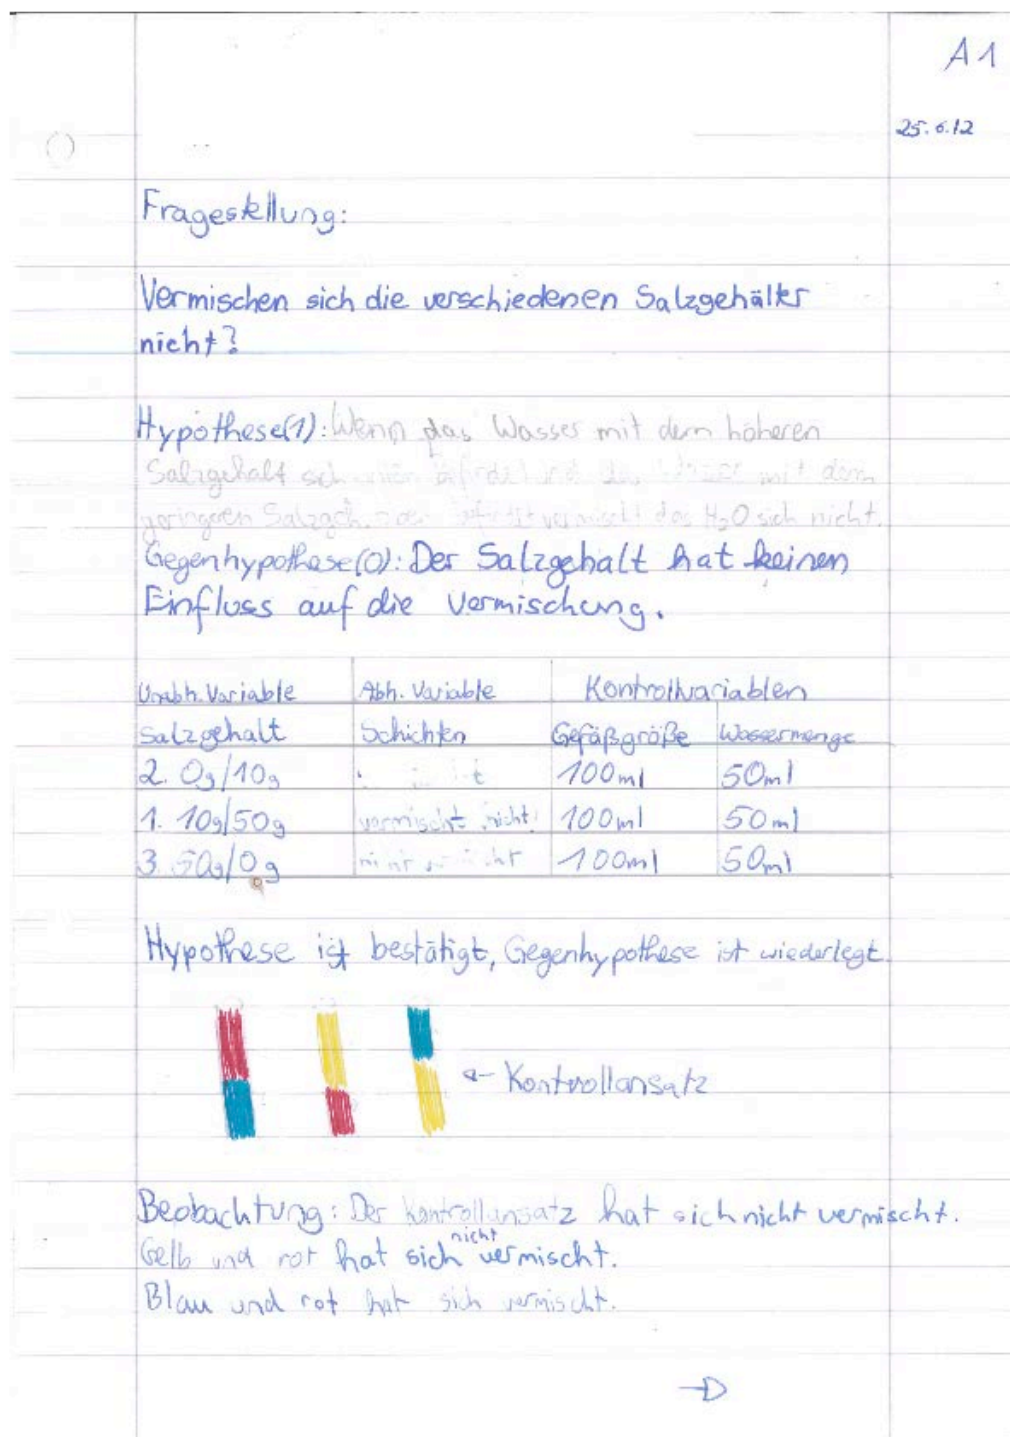 A1
25.6.12
Fragestellung:
Vermischen sich die verschiedenen Salzgehälter
nicht?
Hypothese(1): Wenn das Wasser mit dem höheren
Salzgehalt sich befindet mit dem
geringeren vermischt das H₂O sich nicht.
Gegenhypothese(0): Der Salzgehalt hat keinen
Einfluss auf die Vermischung.
Unabh. Variable Abh. Variable Kontrollvariablen
Salzgehalt Schichten Gefäßgröße Wassermenge
2. 0g/10g 100ml 50ml
1. 10g/50g vermischt nicht 100ml 50ml
3. 50g/0g 100ml 50ml
Hypothese ist bestätigt, Gegenhypothese ist wiederlegt.
Kontrollansatz
Beobachtung: Der Kontrollansatz hat sich nicht vermischt.
Gelb und rot hat sich nicht vermischt.
Blau und rot hat sich vermischt.